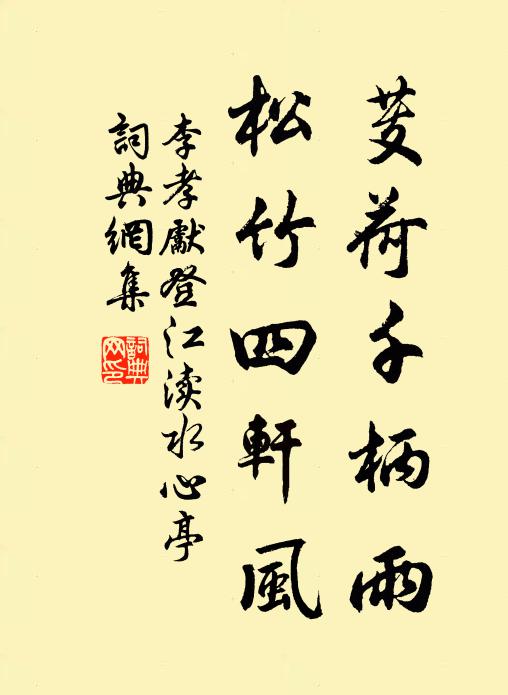 芰荷千柄雨
松竹四軒風
李孝獻登江渎水心亭
詞典網集
詞典網印